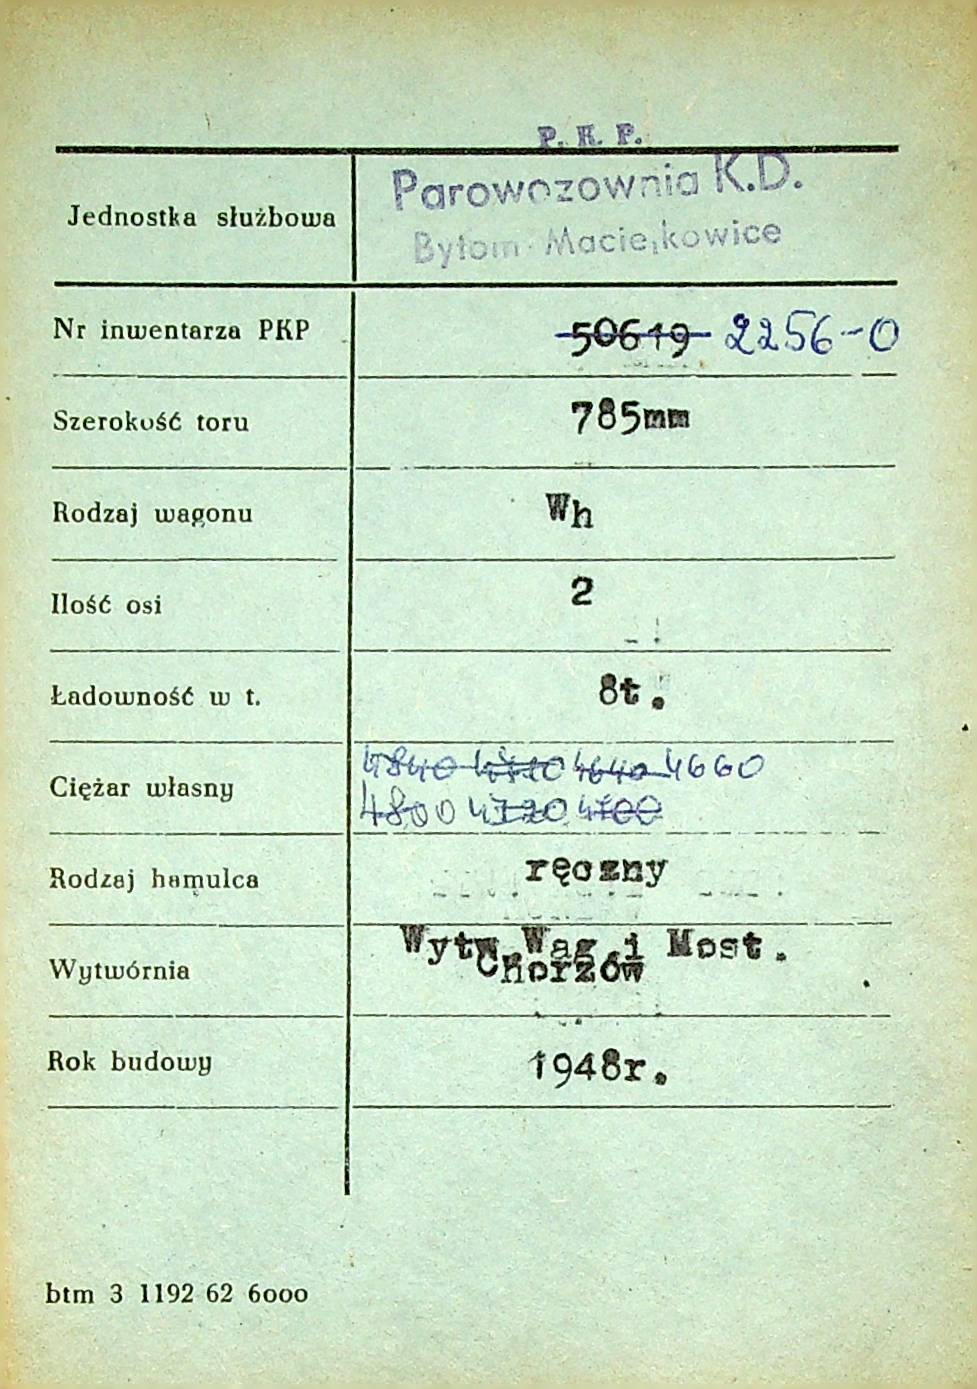 P. K. P.
Jednostka służbowa Parowozownia K.D.
Bytom Maciejkowice
Nr inwentarza PKP 50619 2256-0
Szerokość toru 785mm
Rodzaj wagonu Wh
Ilość osi 2
Ładowność w t. 8t.
Ciężar własny 4840 4640 4660
4800 4720 4700
Rodzaj hamulca ręczny
Wytwórnia Wytw.Wag.i Most.
Chorzów
Rok budowy 1948r.
btm 3 1192 62 6000